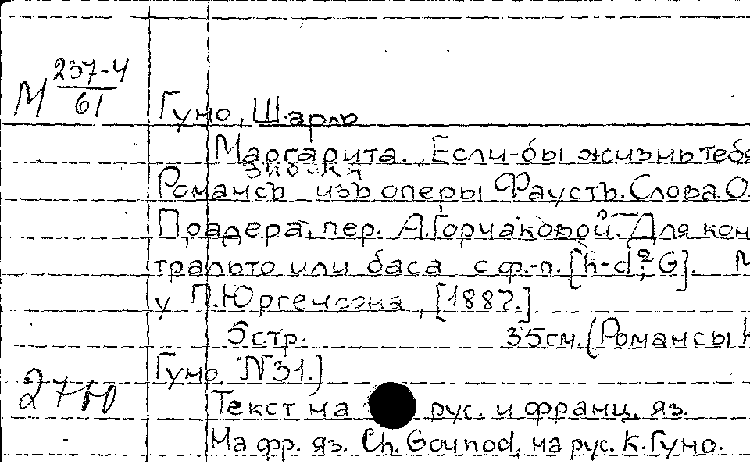 М 237-4
61
Гуно, Шарль
Маргарита. Если-бы жизнь тебя
Романсъ изъ оперы Фаустъ. Слова О.
Прадера, пер. А. Горчаковой. Для кон
тральто или баса с ф.-п. [h-d²; G]. М
у П. Юргенсона, [1887.]
5 стр. 35 см. (Романсы К
Гуно. N 31.)
Текст на рус. и франц. яз.
На фр. яз. Ch. Gounod, на рус. К. Гуно.